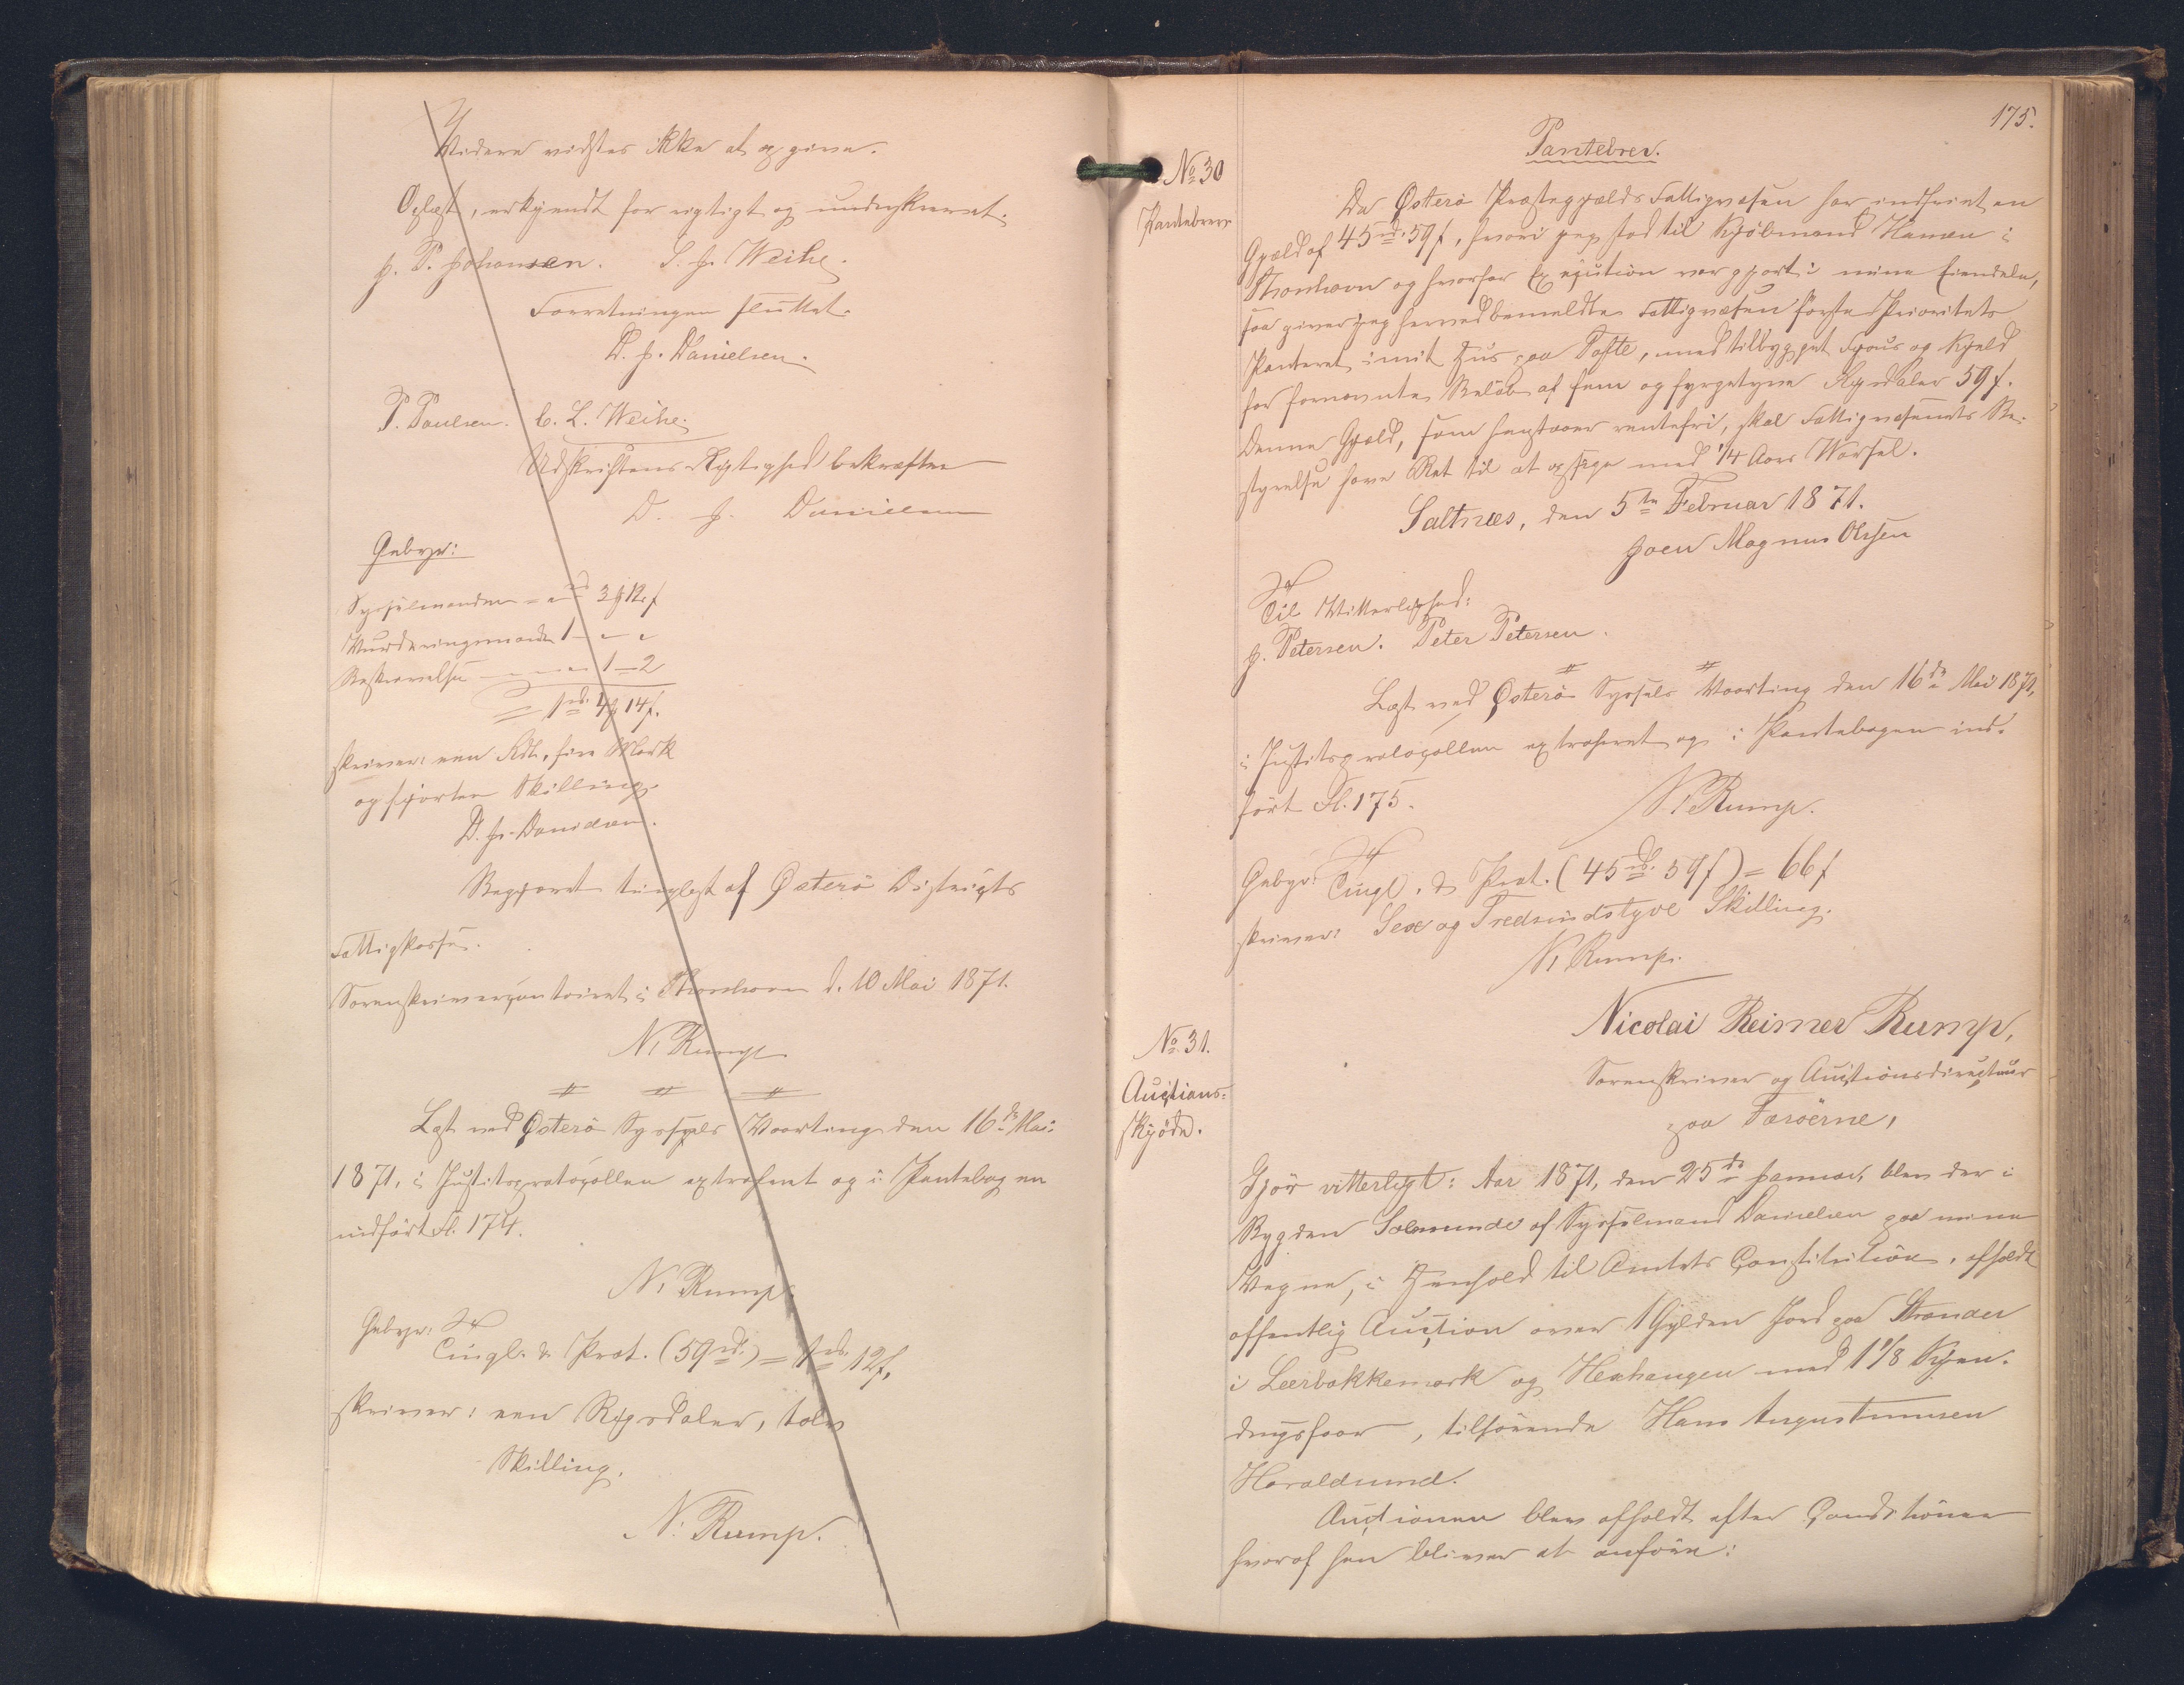 Videre vidstes ikke at opgive.
Oplæst, erkjendt for rigtigt og underskrevet.
J. P. Johansen. S. J. Weihe.
Forretningen sluttet.
D. J. Danielsen.
P. Poulsen. C. L. Weihe.
Udskriftens Rigtighed bekræfter
D. J. Danielsen
Gebyr:
Sysselmanden - " rd 3 Ɱ 12 ſ
Vurderingsmænd 1 - " - "
Beskrivelse - " - 1 - 2
= 1 rd. 4 Ɱ 14 ſ.
skriver: een Rdl., fire Mark
og fjorten Skilling.
D. J. Danielsen.
Begjæret tinglæst af Østerö Districts
Fattigkasse.
Sorenskrivercontoiret i Thorshavn d. 10 Mai 1871.
N. Rump
Læst ved Østerö Syssels Vaarting den 16de Mai
1871, i Justitsprotocollen extraheret og i Pantebogen
indfört Fl. 174.
N. Rump.
Gebyr:
Tingl. & Prot. (59 rd.) = 1 rd. 12 ſ,
skriver: een Rigsdaler, tolv
Skilling.
N. Rump.
175.
No 30
Pantebrev
Pantebrev.
Da Østerö Præstegjælds Fattigvæsen har indfriet en
Gjæld af 45 rd. 59 ſ, hvori jeg stod til Kjöbmand Hansen i
Thorshavn og hvorfor Execution var gjort i mine Eiendele,
saa giver jeg herved bemeldte Fattigvæsen förste Prioritets
Panteret i mit Huus paa Tofte, med tilbygget Hjaus og Kjeld
for fornævnte Belöb af fem og fyrgetyve Rigsdaler 59 ſ.
Denne Gjæld, som henstaaer rentefri, skal Fattigvæsenets Be-
styrelse have Ret til at opsige med 1/4 Aars Varsel.
Saltnæs, den 5te Februar 1871.
Joen Magnus Olsen
Til Vitterlighed:
J. Petersen. Peter Petersen.
Læst ved Østerö Syssels Vaarting den 16de Mai 1871,
i Justitsprotocollen extraheret og i Pantebogen ind-
fört Fl. 175.
N. Rump.
Gebyr: Tingl. & Prot. (45 rd. 59 ſ) = 66 ſ
skriver: Sex og Tredsindstyve Skilling.
N. Rump.
No. 31.
Auctions-
skjöde.
Nicolai Reimer Rump,
Sorenskriver og Auctionsdirecteur
paa Færöerne,
Gjör vitterligt: Aar 1871, den 25de Januar, blev der i
Bygden Selmunde af Sysselmand Danielsen paa mine
Vegne, i Henhold til Amtets Constitution, afholdt
offentlig Auction over 1 Gylden Jord paa Strander
i Leerbakkemark og Heahaugen med 1 1/8 Kjen-
dingsfaar, tilhörende Hans Augustinusen
Haraldsund.
Auctionen blev afholdt efter Conditioner
hvoraf her bliver at anföre: